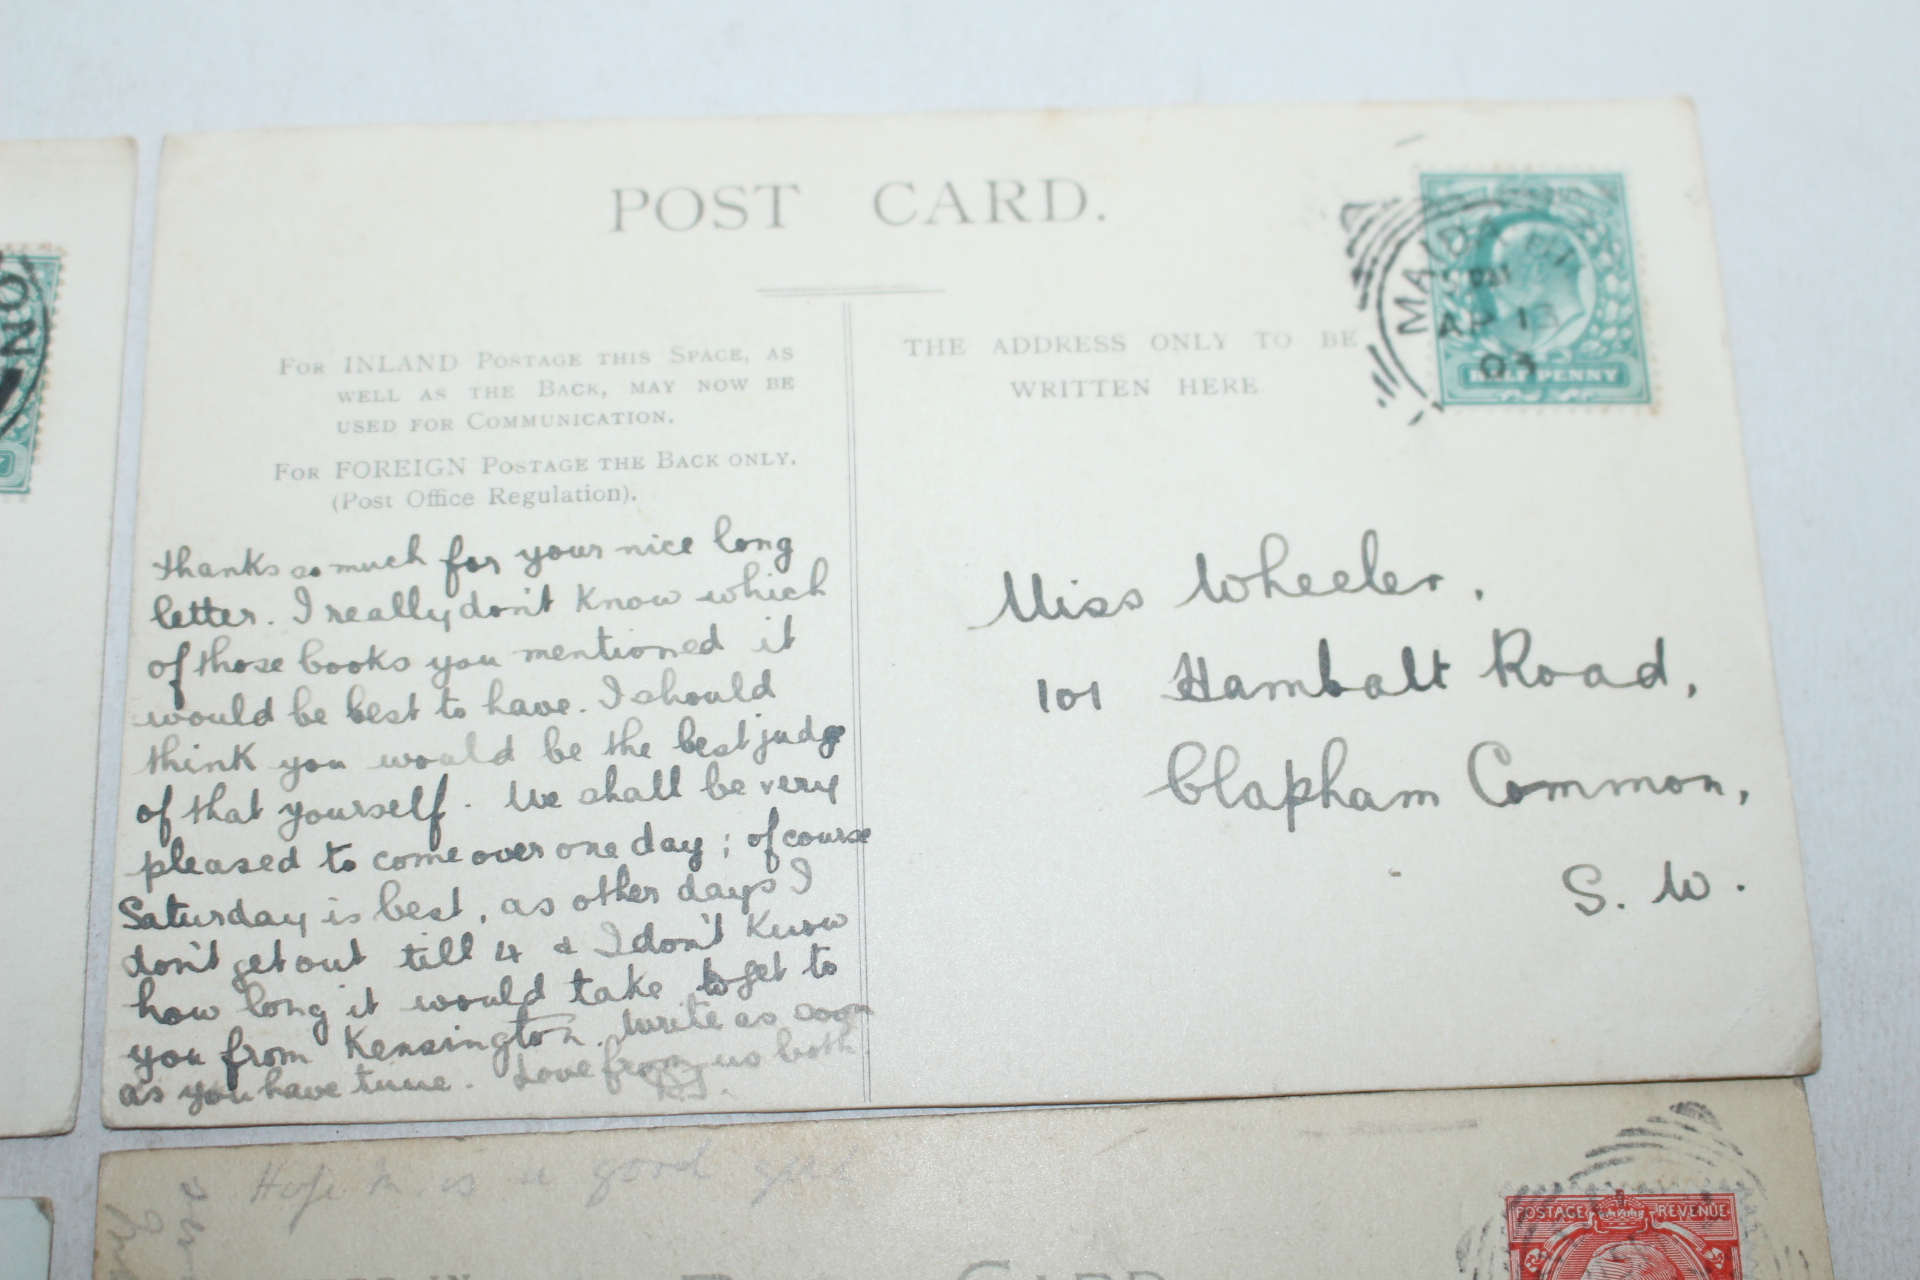 POST CARD.
FOR INLAND POSTAGE THIS SPACE, AS
WELL AS THE BACK, MAY NOW BE
USED FOR COMMUNICATION.
FOR FOREIGN POSTAGE THE BACK ONLY.
(Post Office Regulation).
thanks so much for your nice long
letter. I really don't know which
of those books you mentioned it
would be best to have. I should
think you would be the best judge
of that yourself. We shall be very
pleased to come over one day; of course
Saturday is best, as other days I
don't get out till 4 & I don't know
how long it would take to get to
you from Kensington. Write as soon
as you have time. Love from us both.
THE ADDRESS ONLY TO BE
WRITTEN HERE
AP 13
03
HALF PENNY
Miss Wheeler,
101 Hambalt Road,
Clapham Common,
S. W.
ON
Hope M. is a good girl
POSTAGE REVENUE